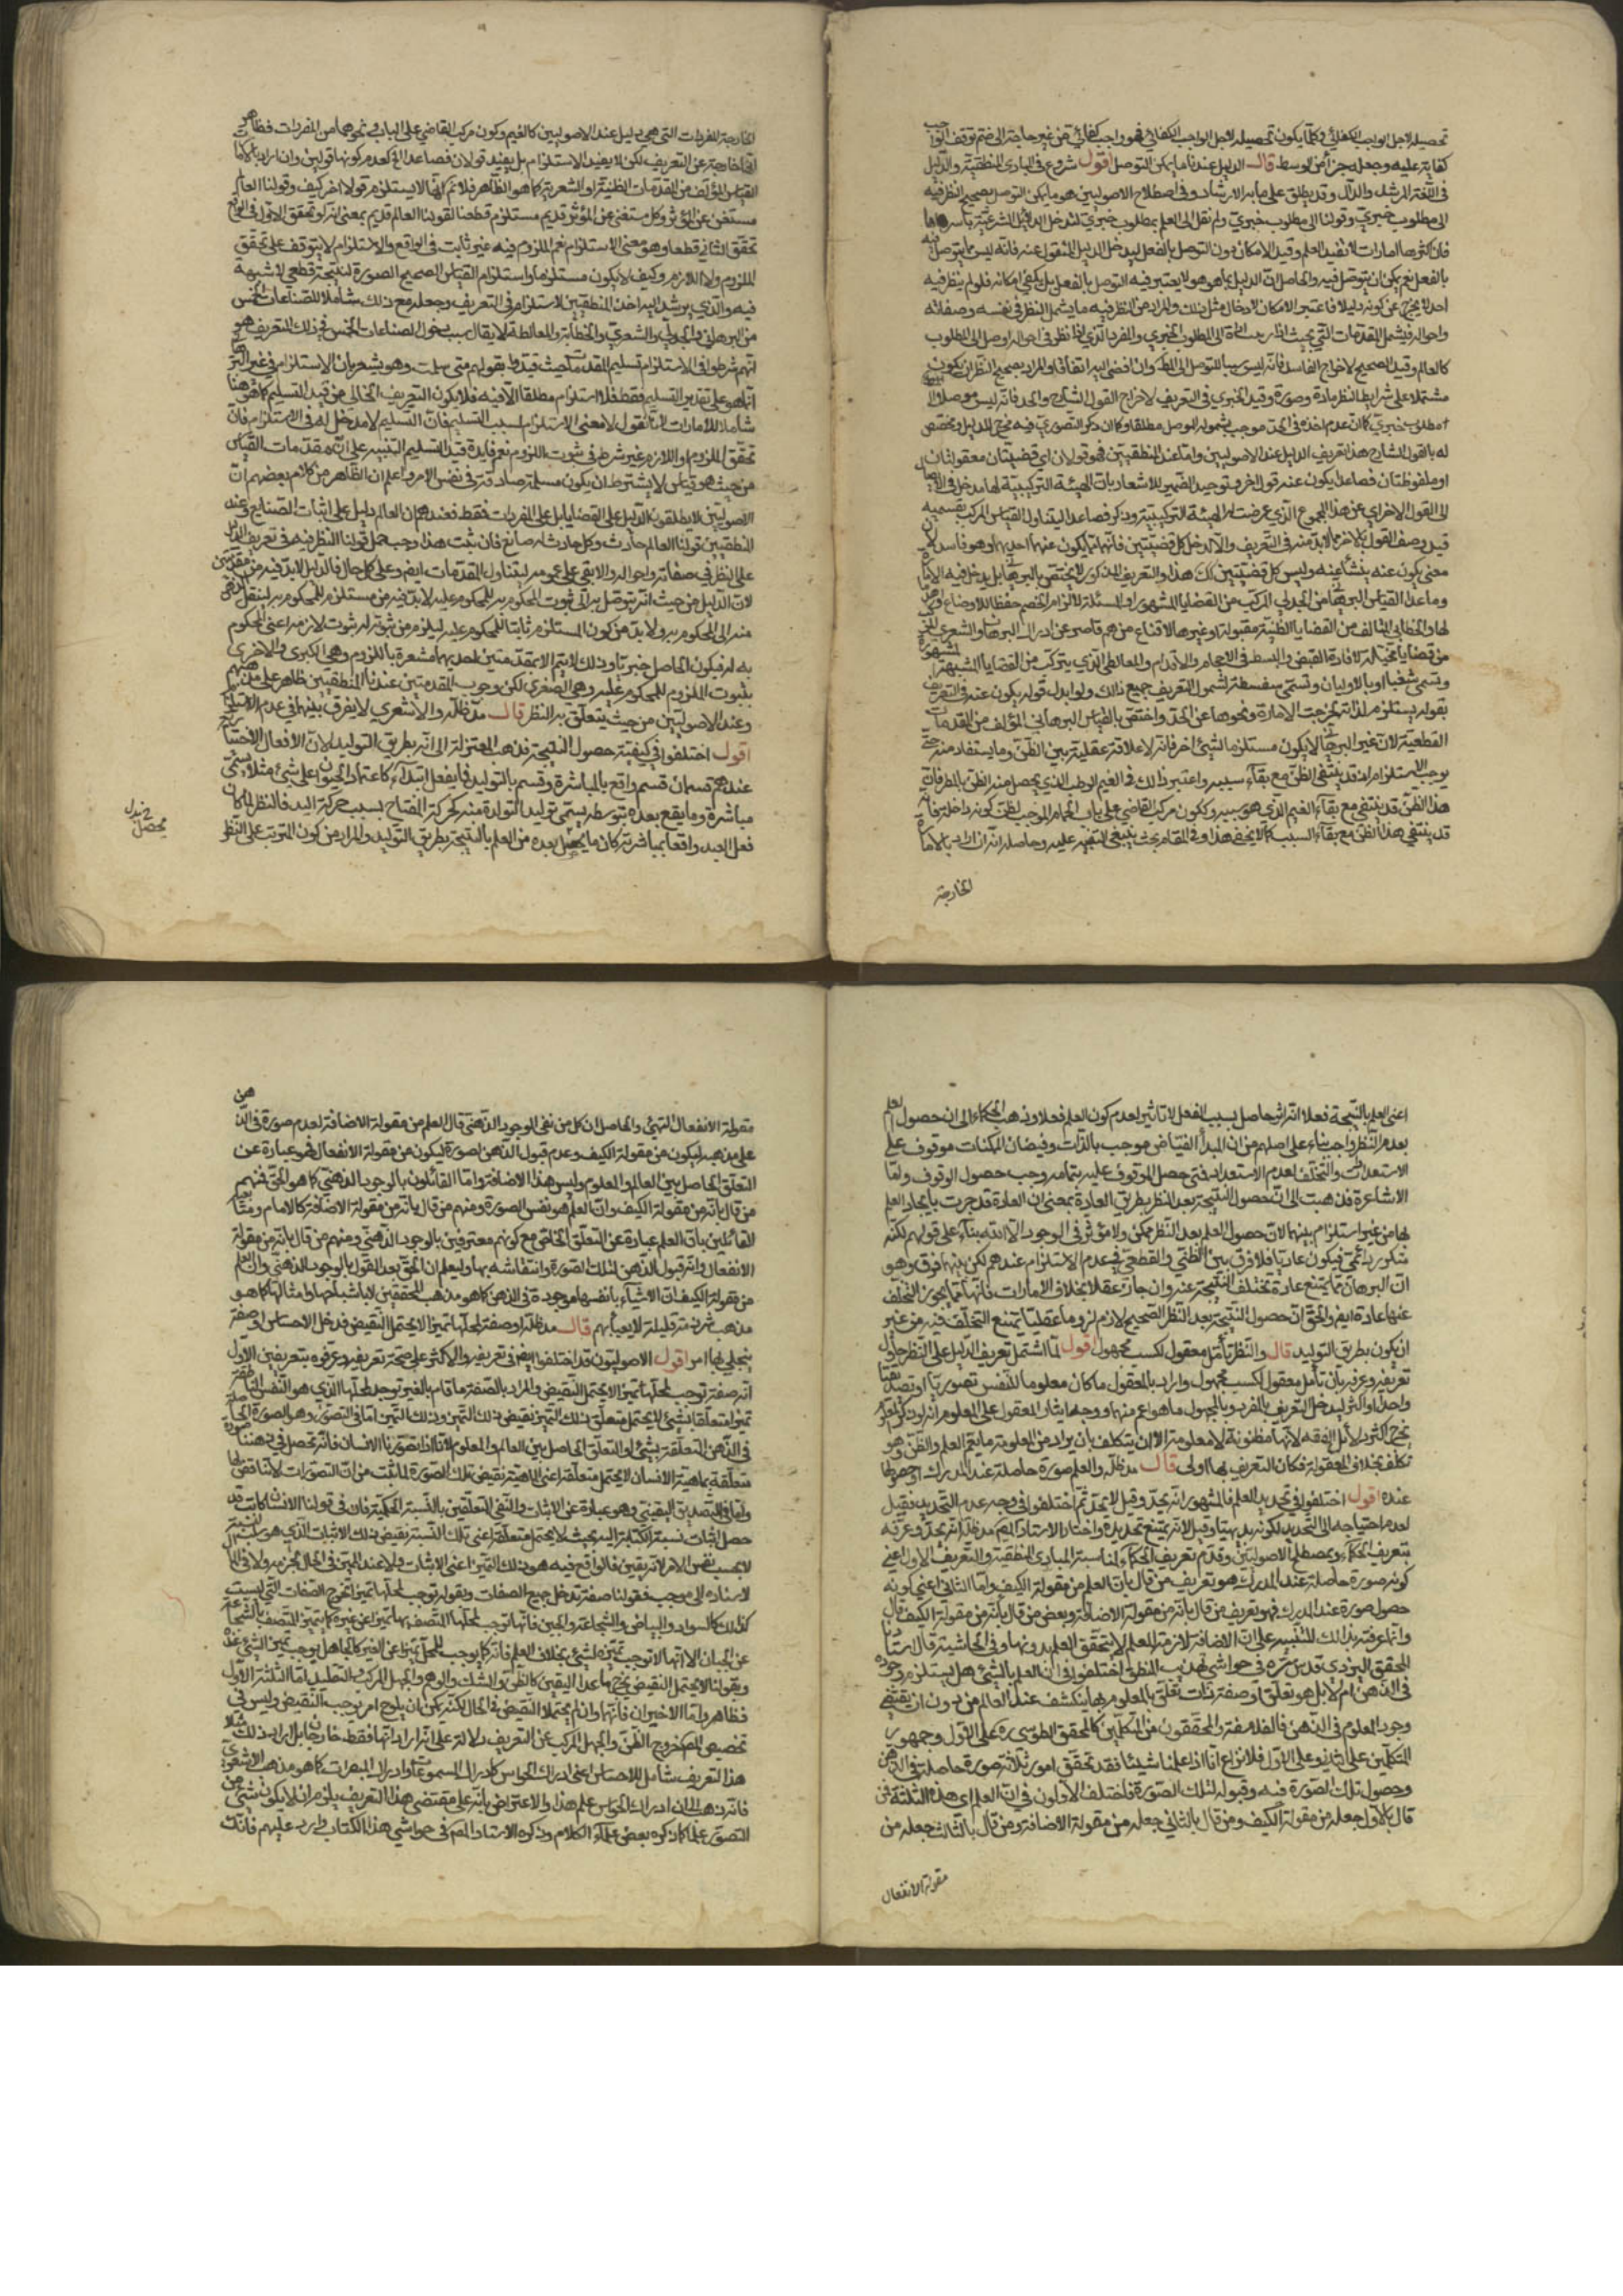 تحصيله لاجل الواجب الكفائي وكلما يكون تحصيله لاجل الواجب الكفائي فهو واجب كفائي من غير حاجة الى ضم توقف الواجب
كفاية عليه وجعله جزأ من الوسط قال الدليل عندنا ما يمكن التوصل اقول شروع في المبادى المنطقية والدليل
في اللغة المرشد والدال وقد يطلق على ما به الارشاد وفي اصطلاح الاصوليين هو ما يمكن التوصل بصحيح النظر فيه
الى مطلوب خبري وقولنا الى مطلوب خبري ولم نقل الى العلم بمطلوب خبري لتدخل الدلائل الشرعية باسرها
فان اكثرها امارات لا تفيد العلم وقيد الامكان دون التوصل بالفعل ليدخل الدليل المغفول عنه فانه ليس مما يتوصل به
بالفعل نعم يمكن ان يتوصل فيه والحاصل ان الدليل بما هو هو لا يعتبر فيه التوصل بالفعل بل يكفى امكانه فلو لم ينظر فيه
احد لا يخرج عن كونه دليلا فاعتبر الامكان لادخال مثل ذلك والمراد من النظر فيه ما يشمل النظر في نفسه وصفاته
واحواله فيشمل المقدمات التي بحيث اذا رتبت ادت الى المطلوب الخبري والمفرد الذي اذا نظر في احواله اوصل الى المطلوب
كالعالم وقيد الصحيح لاخراج الفاسد فانه ليس سببا للتوصل الى المط وان افضى اليه اتفاقا والمراد بصحيح النظر ان يكون
مشتملا على شرايط النظر مادة وصورة وقيد الخبري في التعريف لاخراج القول الشارح والحد فانه ليس موصلا الى
مطلوب خبري كما ان عدم اخذه في الحد موجب لشموله الموصل مطلقا وكان ذكر التصوري فيه مخرج للدليل ومخصص
له بالقول الشارح هذا تعريف الدليل عند الاصوليين واما عند المنطقيين فهو قولان اى قضيتان معقولتان
او ملفوظتان فصاعدا يكون عنه قول اخر وتوحيد الضمير للاشعار بان الهيئة التركيبية لها مدخل في الايصال
الى القول الاخر اي عن هذا المجموع الذي عرضت له الهيئة التركيبية وذكر فصاعدا ليتناول القياس المركب بقسميه
قيل وصف القول بالاخر مما لابد منه في التعريف والا لدخل كل قضيتين فانهما يكون عنهما احديهما وهو فاسد لان
معنى يكون عنه ينشأ عنه وليس كل قضيتين كك هذا والتعريف المذكور لا يختص بالبرهان بل يدخل فيه الامارة
وما عدا القياس البرهاني من الجدلي المركب من القضايا المشهورة او المسئلة لالزام الخصم حفظا للاوضاع او هدما
لها والخطابي المتالف من القضايا الظنية مقبولة او غيرها لاقناع من هو قاصر عن ادراك البرهان والشعري المؤلف
من قضايا مخيلة لافادة القبض والبسط في الاحجام والاقدام والمغالطي الذي يتركب من القضايا المشبهة بالمشهورة
وتسمى شغبا او بالاوليات وتسمى سفسطة لشمول التعريف جميع ذلك ولو ابدل قوله يكون عنه في التعريف
بقوله يستلزم لذاته لخرجت الامارة ونحوها عن الحد واختص بالقياس البرهاني المؤلف من المقدمات
القطعية لان غير البرهان لا يكون مستلزما لشئ اخر فانه لا علاقة عقلية بين الظن وما يستفاد منه حتى
يوجب استلزامه اذ قد ينتفى الظن مع بقاء سببه واعتبر ذلك في الغيم الرطب الذي يحصل منه الظن بالمطر فان
هذا الظن قد ينتفى مع بقاء الغيم الذي هو سببه وككون مركب القاضي على باب الحمام الموجب لظن كونه داخله فانه
قد ينتفى هذا الظن مع بقاء السبب كما لا يخفى هذا وفي المقام بحث ينبغى التنبيه عليه وحاصله انه ان اراد بالامارة
الخارجة
الخارجة المفردات التي هي دليل عند الاصوليين كالغيم وكون مركب القاضي على الباب ونحوهما من المفردات فظاهر
انها خارجة عن التعريف لكن لا يفيد الاستلزام بل يفيد قولان فصاعدا الخ لعدم كونها قولين وان اراد بالامارة
القياس المؤلف من المقدمات الظنية او الشعرية كما هو الظاهر فلا نم انها لا يستلزم قولا اخر كيف وقولنا العالم
مستغن عن المؤثر وكل مستغن عن المؤثر قديم مستلزم قطعا لقولنا العالم قديم بمعنى انه لو تحقق الاول في الواقع
تحقق الثاني قطعا وهو معنى الاستلزام نعم الملزوم فيه غير ثابت في الواقع والاستلزام لا يتوقف على تحقق
الملزوم ولا اللازم وكيف لا يكون مستلزما واستلزام القياس الصحيح الصورة لنتيجته قطعي لا شبهة
فيه والذي يرشد اليه اخذ المنطقيين الاستلزام في التعريف وجعله مع ذلك شاملا للصناعات الخمس
من البرهاني والجدلي والشعري والخطابة والمغالطة لا يقال سبب دخول الصناعات الخمس في ذلك التعريف هو
انهم شرطوا في الاستلزام تسليم المقدمات حيث قيدوا بقولهم متى سلمت وهو يشعر بان الاستلزام في غير البرهان
انما هو على تقدير التسليم فقط فلا استلزام مطلقا الا فيه فلا يكون التعريف الخالي من قيد التسليم كما في هنا
شاملا للامارات لانا نقول لا معنى الاستلزام لسبب التسليم فان التسليم لا مدخل له في الاستلزام فان
تحقق الملزوم او اللازم غير شرط في ثبوت اللزوم نعم فايدة قيد التسليم التنبيه على ان مقدمات القياس
من حيث هو قياس لا يشترط ان يكون مسلمة صادقة في نفس الامر واعلم ان الظاهر من كلام بعضهم ان
الاصوليين لا يطلقون الدليل على القضايا بل على المفردات فقط فعندهم ان العالم دليل على اثبات الصانع وعند
المنطقيين قولنا العالم حادث وكل حادث له صانع فان ثبت هذا وجب حمل قولنا النظر فيه في تعريف الدليل
على النظر في صفاته واحواله والا بقى على عمومه ليتناول المقدمات ايضم وعلى كل حال فالدليل لابد فيه من مقدمتين
لان الدليل من حيث انه يتوصل به الى ثبوت المحكوم به للمحكوم عليه لابد فيه من مستلزم للمحكوم به لينتقل الذهن
منه الى المحكوم به ولا بد من كون المستلزم ثابتا للمحكوم عليه ليلزم من ثبوته له ثبوت لازمه اعنى المحكوم
به له فيكون الحاصل خبريا وذلك لا يتم الا بمقدمتين احديهما مشعرة باللزوم وهي الكبرى والاخرى
بثبوت الملزوم للمحكوم عليه وهي الصغرى لكن وجوب المقدمتين عندنا المنطقيين ظاهر على مذهبهم
وعند الاصوليين من حيث يتعلق به النظر قال مد ظله والاشعري لا يفرق بينهما في عدم الاستلزام
اقول اختلفوا في كيفية حصول النتيجة فذهب المعتزلة الى انه بطريق التوليد لان الافعال الاختيارية
عندهم قسمان قسم واقع بالمباشرة وقسم بالتوليد فما يفعل ابتداء كاعتماد الحيوان على شئ مثلا يسمى
مباشرة وما يقع بعده بتوسطه يسمى توليدا لتولده منه كحركة المفتاح بسبب حركة اليد فالنظر لما كان
فعل العبد واقعا بمباشرته كان ما يحصل بعده من العلم بالنتيجة بطريق التوليد والمراد من كون المترتب على النظر
اعنى العلم بالنتيجة فعلا انه اثر حاصل بسبب الفعل لا تاثير لعدم كون العلم فعلا وذهب الحكماء الى ان حصول العلم
بعد النظر واجب بناء على اصلهم من ان المبدأ الفياض موجب بالذات وفيضان الممكنات موقوف على
الاستعدادات والتخلف لعدم الاستعداد فمتى حصل الموقوف عليه بتمامه وجب حصول الموقوف واما
الاشاعرة فذهبت الى ان حصول النتيجة بعد النظر بطريق العادة بمعنى ان العادة قد جرت بايجاد العلم
لها من غير استلزام بينهما لان حصول العلم بعد النظر ممكن ولا مؤثر في الوجود الا الله بناء على قولهم لكنه
متكرر دائمي فيكون عاديا فلا فرق بين الظني والقطعي في عدم الاستلزام عندهم لكن بينهما فرق وهو
ان البرهان مما يمتنع عادة تخلف النتيجة عنه وان جاز عقلا بخلاف الامارات فانها مما يجوز التخلف
عنها عادة ايضم والحق ان حصول النتيجة بعد النظر الصحيح لازم لزوما عقليا يمتنع التخلف فيه من غير
ان يكون بطريق التوليد قال والنظر تأمل معقول لكسب مجهول اقول لما اشتمل تعريف الدليل على النظر حاول
تعريفه وعرفه بان تأمل معقول لكسب مجهول واراد بالمعقول ما كان معلوما للنفس تصوريا او تصديقيا
واحدا او اكثر ليدخل التعريف بالمفرد وبالمجهول ما هو اعم منهما ووجه ايثار المعقول على المعلوم انه لو ذكر المعلوم
يخرج اكثر دلائل الفقه لانها مظنونة لا معلومة الا ان يتكلف بان يراد من المعلومة ما يعم العلم والظن وهو
تكلف بخلاف المعقولة فكان التعريف بها اولى قال مد ظله والعلم صورة حاصلة عند المدرك او حصولها
عنده اقول اختلفوا في تحديد العلم فالمشهور انه يحد وقيل لا يحد ثم اختلفوا في وجه عدم التحديد فقيل
لعدم احتياجه الى التحديد لكونه بديهيا وقيل لانه يمتنع تحديده واختار الاستاد المصم مد ظله انه يحد وعرفه
بتعريف الحكماء وبمصطلح الاصوليين وقدم تعريف الحكماء لمناسبة المبادى المنطقية والتعريف الاول اعني
كونه صورة حاصلة عند المدرك هو تعريف من قال بان العلم من مقولة الكيف واما الثاني اعني كونه
حصول صورة عند المدرك فهو تعريف من قال بانه من مقولة الاضافة وبعض من قال بانه من مقولة الكيف قال
وانما عرفه بذلك للتنبيه على ان الاضافة لازمة للعلم لا يتحقق العلم بدونها وفي الحاشية قال استادنا
المحقق اليزدى قدس سره في حواشي تهذيب المنطق اختلفوا في ان العلم بالشئ هل يستلزم وجوده
في الذهن ام لا بل هو تعلق او صفة ذات تعلق بالمعلوم بها ينكشف عند العالم من دون ان يقتضي
وجود المعلوم في الذهن فالفلاسفة والمحققون من المتكلمين كالمحقق الطوسي ره على الاول وجمهور
المتكلمين على الثاني وعلى الاول فلا نزاع انا اذا علمنا شيئا فقد تحقق امور ثلاثة صورة حاصلة في الذهن
وحصول تلك الصورة فيه وقبوله لتلك الصورة فاختلف الاولون في ان العلم اى هذه الثلثة فمن
قال بالاول جعله من مقولة الكيف ومن قال بالثاني جعله من مقولة الاضافة ومن قال بالثالث جعله من
مقولة الانفعال
مقولة الانفعال انتهى والحاصل ان كل من نفى الوجود الذهني قال العلم من مقولة الاضافة لعدم صورة في الذهن
على مذهبه ليكون من مقولة الكيف وعدم قبول الذهن لصورة ليكون من مقولة الانفعال فهو عبارة عن
التعلق الحاصل بين العالم والمعلوم وليس هذا الا اضافة واما القائلون بالوجود الذهني كما هو الحق فمنهم
من قال بانه من مقولة الكيف وان العلم هو نفس الصورة ومنهم من قال بانه من مقولة الاضافة كالامام ومتابعيه
القائلين بان العلم عبارة عن التعلق الخاص مع كونهم معترفين بالوجود الذهني ومنهم من قال بانه من مقولة
الانفعال وانه قبول الذهن لتلك الصورة وانتقاشه بها وليعلم ان الحق بعد القول بالوجود الذهني وان العلم
من مقولة الكيف ان الاشياء بانفسها موجودة في الذهن كما هو مذهب المحققين لا باشباحها وامثالها كما هو
مذهب شرذمة قليلة لا يعبأ بهم قال مد ظله او صفة لمحلها تميزا لا يحتمل النقيض فدخل الاحساس او صفة
ينجلي بها امر اقول الاصوليون قد اختلفوا ايضم في تعريفه والاكثر على صحة تعريفه وعرفوه بتعريفين الاول
انه صفة توجب لمحلها تميزا لا يحتمل النقيض والمراد بالصفة ما قام بالغير توجد لمحلها الذي هو النفس
تميزا متعلقا بشئ لا يحتمل متعلق ذلك التميز نقيض ذلك التميز وذلك التميز اما في التصور وهو الصورة الحاصلة
في الذهن المتعلقة بشئ او التعلق الحاصل بين العالم والمعلوم لانا اذا تصورنا الانسان فانه تحصل في ذهننا صورة
متعلقة بماهية الانسان لا يحتمل متعلقه اعنى الماهية نقيض تلك الصورة لما ثبت من ان التصورات لا تناقض لها
واما في التصديق اليقيني وهو عبارة عن الاثبات والنفى المتعلقين بالنسبة الحكمية فان في قولنا الانسان كاتب قد
حصل اثبات نسبة الكتابة اليه بحيث لا يحتمل متعلقه اعنى تلك النسبة نقيض ذلك الاثبات الذي هو سلب النسبة
لا بحسب نفس الامر لانه يقين فالواقع فيه هو ذلك التميز اعنى الاثبات ولا عند المميز في الحال لجزمه ولا في المآل
لاستناده الى موجب فقولنا صفة تدخل جميع الصفات وبقوله توجب لمحلها تميزا تخرج الصفات التي ليست
كذلك كالسواد والبياض والشجاعة والجبن فانها توجب لمحلها المتصف بها تميزا عن غيره كما يتميز المتصف بالشجاعة
عن الجبان الا انها لا توجب تميزه لشئ بخلاف العلم فانه كما يوجب للمحل تميزا عن الغير كالجاهل يوجب تميز الشئ عنده
وبقولنا لا يحتمل النقيض يخرج ما عدا اليقين كالظن والشك والوهم والجهل المركب والتقليد اما الثلثة الاول
فظاهر واما الاخيران فانهما وان لم يحتملا النقيض في الحال لكنه يمكن ان يلوح امر يوجب النقيض وليس في
تخصيص المصم خروج الظن والجهل المركب عن التعريف دلالة على انه اراد انهما فقط خارجان بل اراد ذلك مثلا
هذا التعريف شامل للاحساس اعنى ادراك الحواس كادراك المسموعات وادراك المبصرات كما هو مذهب الاشعري
فانه ذهب الى ان ادراك الحواس علم هذا والاعتراض بانه على مقتضى هذا التعريف يلزم ان لا يكون شئ من
التصور علما كما ذكره بعض علماء الكلام وذكره الاستاد المصم في حواشي هذا الكتاب وارد عليهم فانك